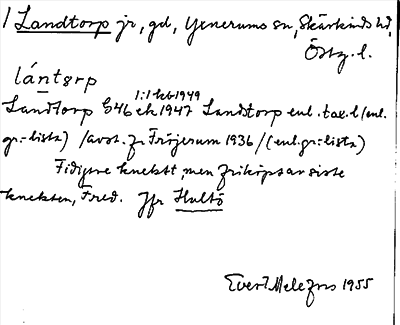 / Landtorp jr, gd, Yxnerums sn, Skärkinds hd,
Östg. l.
lántɘrp
1:1 kb 1949
Landtorp G46 ek 1947 Landtorp enl. tax.l (enl.
gr.-lista) /avst. fr Fröjerum 1936/ (enl. gr.-lista)
Tidigare knektt, men friköpt av siste
knekten, Fred. Jfr Hultö
Evert Melefors 1955